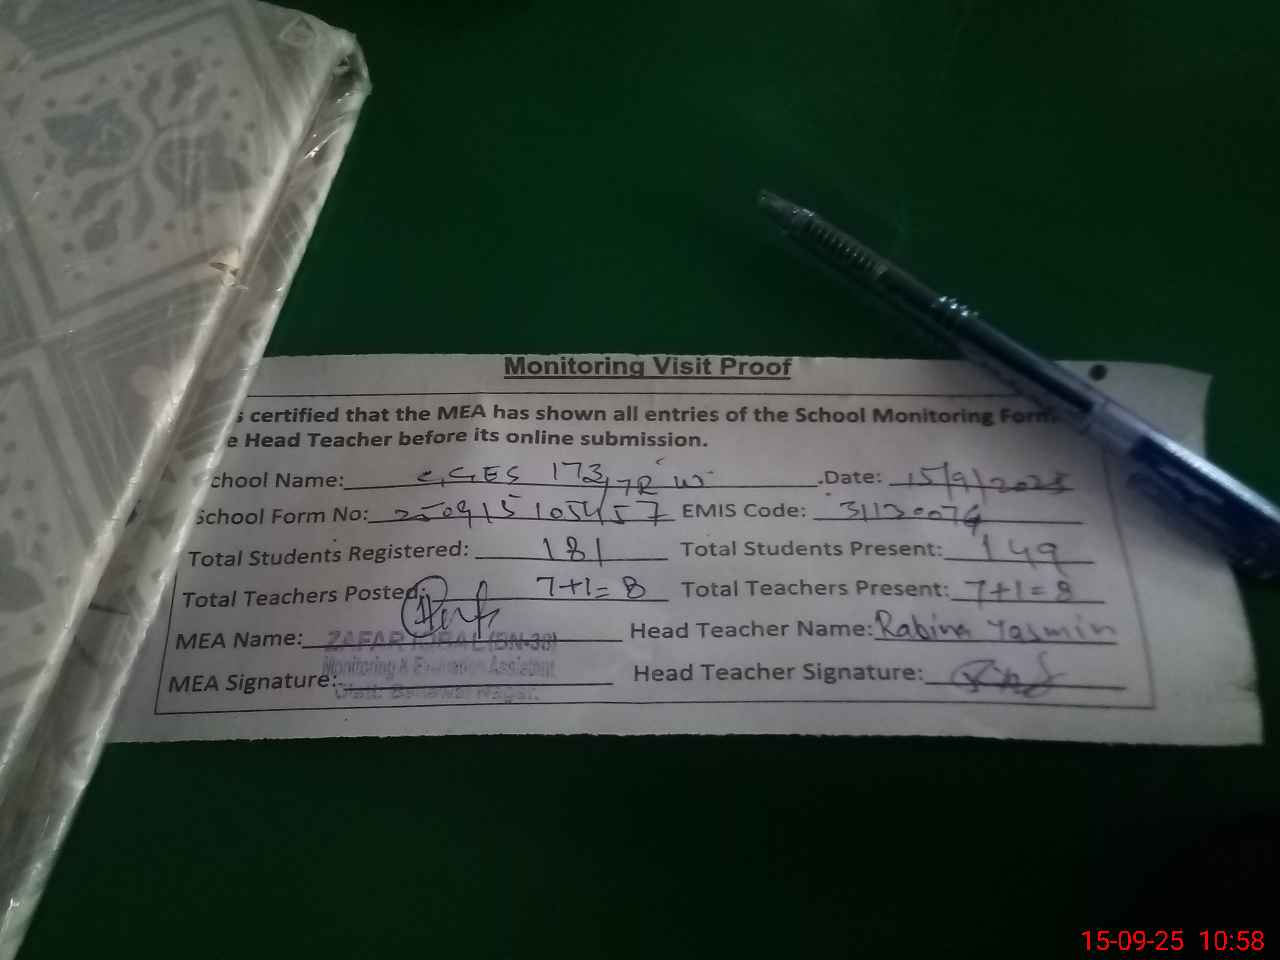 Monitoring Visit Proof
s certified that the MEA has shown all entries of the School Monitoring Form
e Head Teacher before its online submission.
chool Name: GGES 173/7R W Date: 15/9/2025
School Form No: 250915105457 EMIS Code:
Total Students Registered: 181 Total Students Present: 149
Total Teachers Posted: 7+1=8 Total Teachers Present: 7+1=8
MEA Name: ZAFAR IQBAL Head Teacher Name: Rabina Yasmin
Monitoring & Evaluation Assistant
MEA Signature: Head Teacher Signature:
15-09-25 10:58